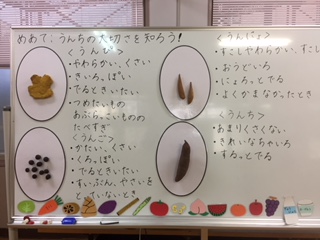 めあて:うんちの大切さを知ろう!
<うんぴ>
・やわらかい、くさい
・きいろっぽい
・でるときいたい
・つめたいもの
あぶらっこいものの
たべすぎ
<うんご>
・かたい、くさい
・くろっぽい
・でるときいたい
・すいぶん、やさいを
とっていないとき
<うんにょ>
・すこしやわらかい、すこし
・おうどいろ
・にょろっとでる
・よくかまなかったとき
<うんち>
・あまりくさくない
・きれいなちゃいろ
・するっとでる